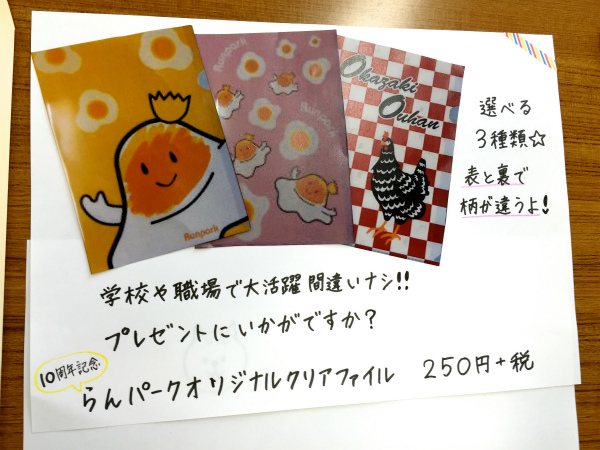 Runpark
Runpark
Runpark
Okazaki
Ouhan
選べる
3種類☆
表と裏で
柄が違うよ!
学校や職場で大活躍間違いナシ!!
プレゼントにいかがですか?
10周年記念
らんパークオリジナルクリアファイル 250円+税